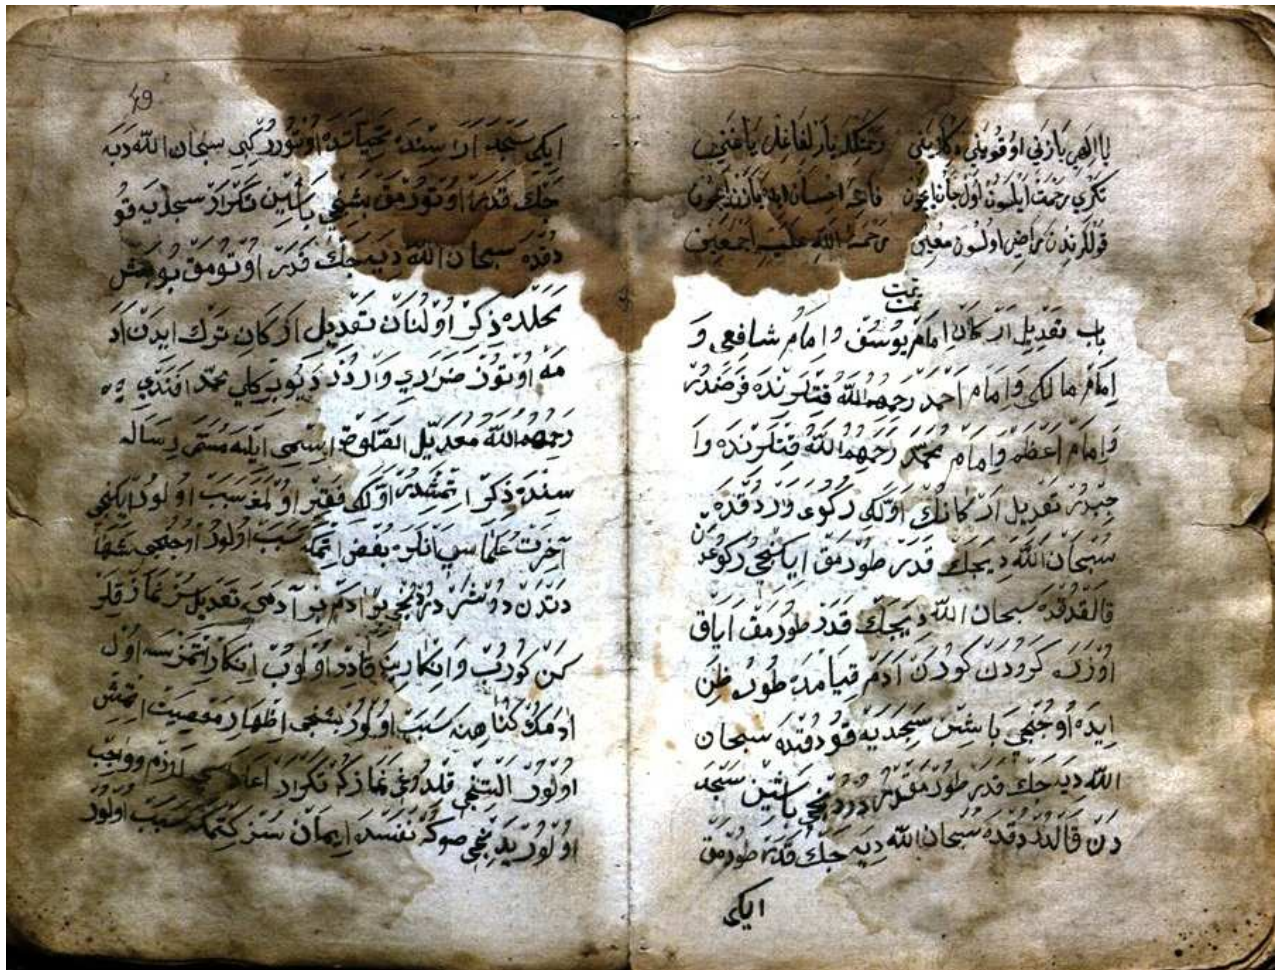 يا الهي يازني اوقويني دكليني رحمتكله يارلغاغل ياغني
تكري رحمت ايلسون اول جان ايچون
قوللرندن راضي اولسون معين رحمة الله عليهم اجمعين
تمت
باب تعديل اركان امام يوسف و امام شافعي و
امام مالكي و امام احمد رحمهم الله قتلرنده فرضدر
و امام اعظم و امام محمد رحمهم الله قتلرنده وا
جبدر تعديل اركانك اولكي ركوعه وردقده
سبحان الله ديجك قدر طورمق ايكنجي ركوعدن
قالقدقده سبحان الله ديجك قدر طورمق اياق
اوزره كرودن كورن ادم قيامده طورر ظن
ايده اوجنجي باشن سجديه قودقده سبحان
الله ديه جك قدر طورمقدر دردنجي باشين سجده
دن قالدردقده سبحان الله ديه جك قدر طورمق
ايكي
49
ايكي سجده اراسنده تحياتده اوتورر كبي سبحان الله ديه
جك قدر اوتورمق بشنجي باشين تكرار سجديه قو
دقده سبحان الله ديه جك قدر اوتومق بو بش
محلده ذكر اولنان تعديل اركان ترك ايدن اد
مه اوتوز ضرري واردر ديوب بركلي محمد افندي
رحمهم الله معديل الصلوة اسمي ايله مسمى رساله
سنده ذكر اتمشدر اولكي فقير اولمغه سبب اولور ايكنجي
آخرت علماسي انلره بغض اتمكه سبب اولور اوجنجي شها
دتدن دوشر دردنجي بر ادم بر آدمي تعديلسز نماز قلر
كن كورب و انكارينه قادر اولوب انكار اتمزسه اول
ادمك كناهنه سبب اولور بشنجي اظهار معصيت اتمش
اولور التنجي قلدوغي نمازكم تكرار اعاده سي لازم و واجب
اولور يدنجي صوكه نفسده ايمان سز كتمكه سبب اولور